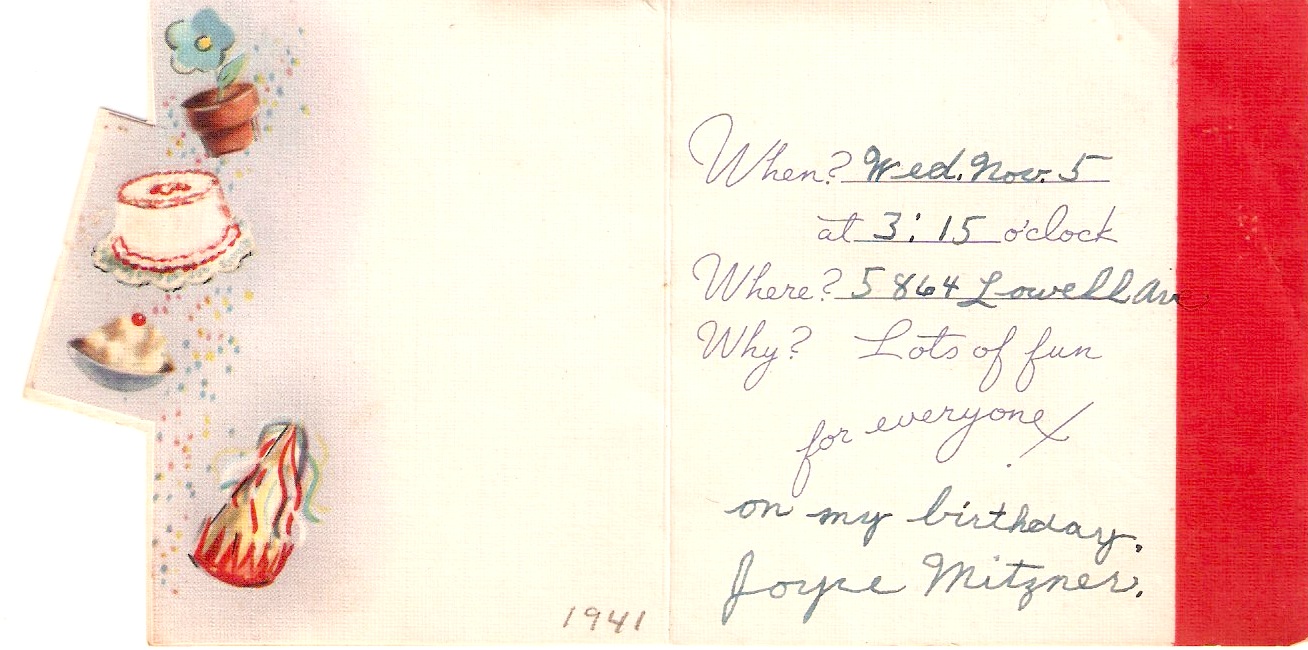 When? Wed. Nov. 5
at 3:15 o'clock
Where? 5864 Lowell Ave
Why? Lots of fun
for everyone!
on my birthday.
Joyce Mitzner.
1941